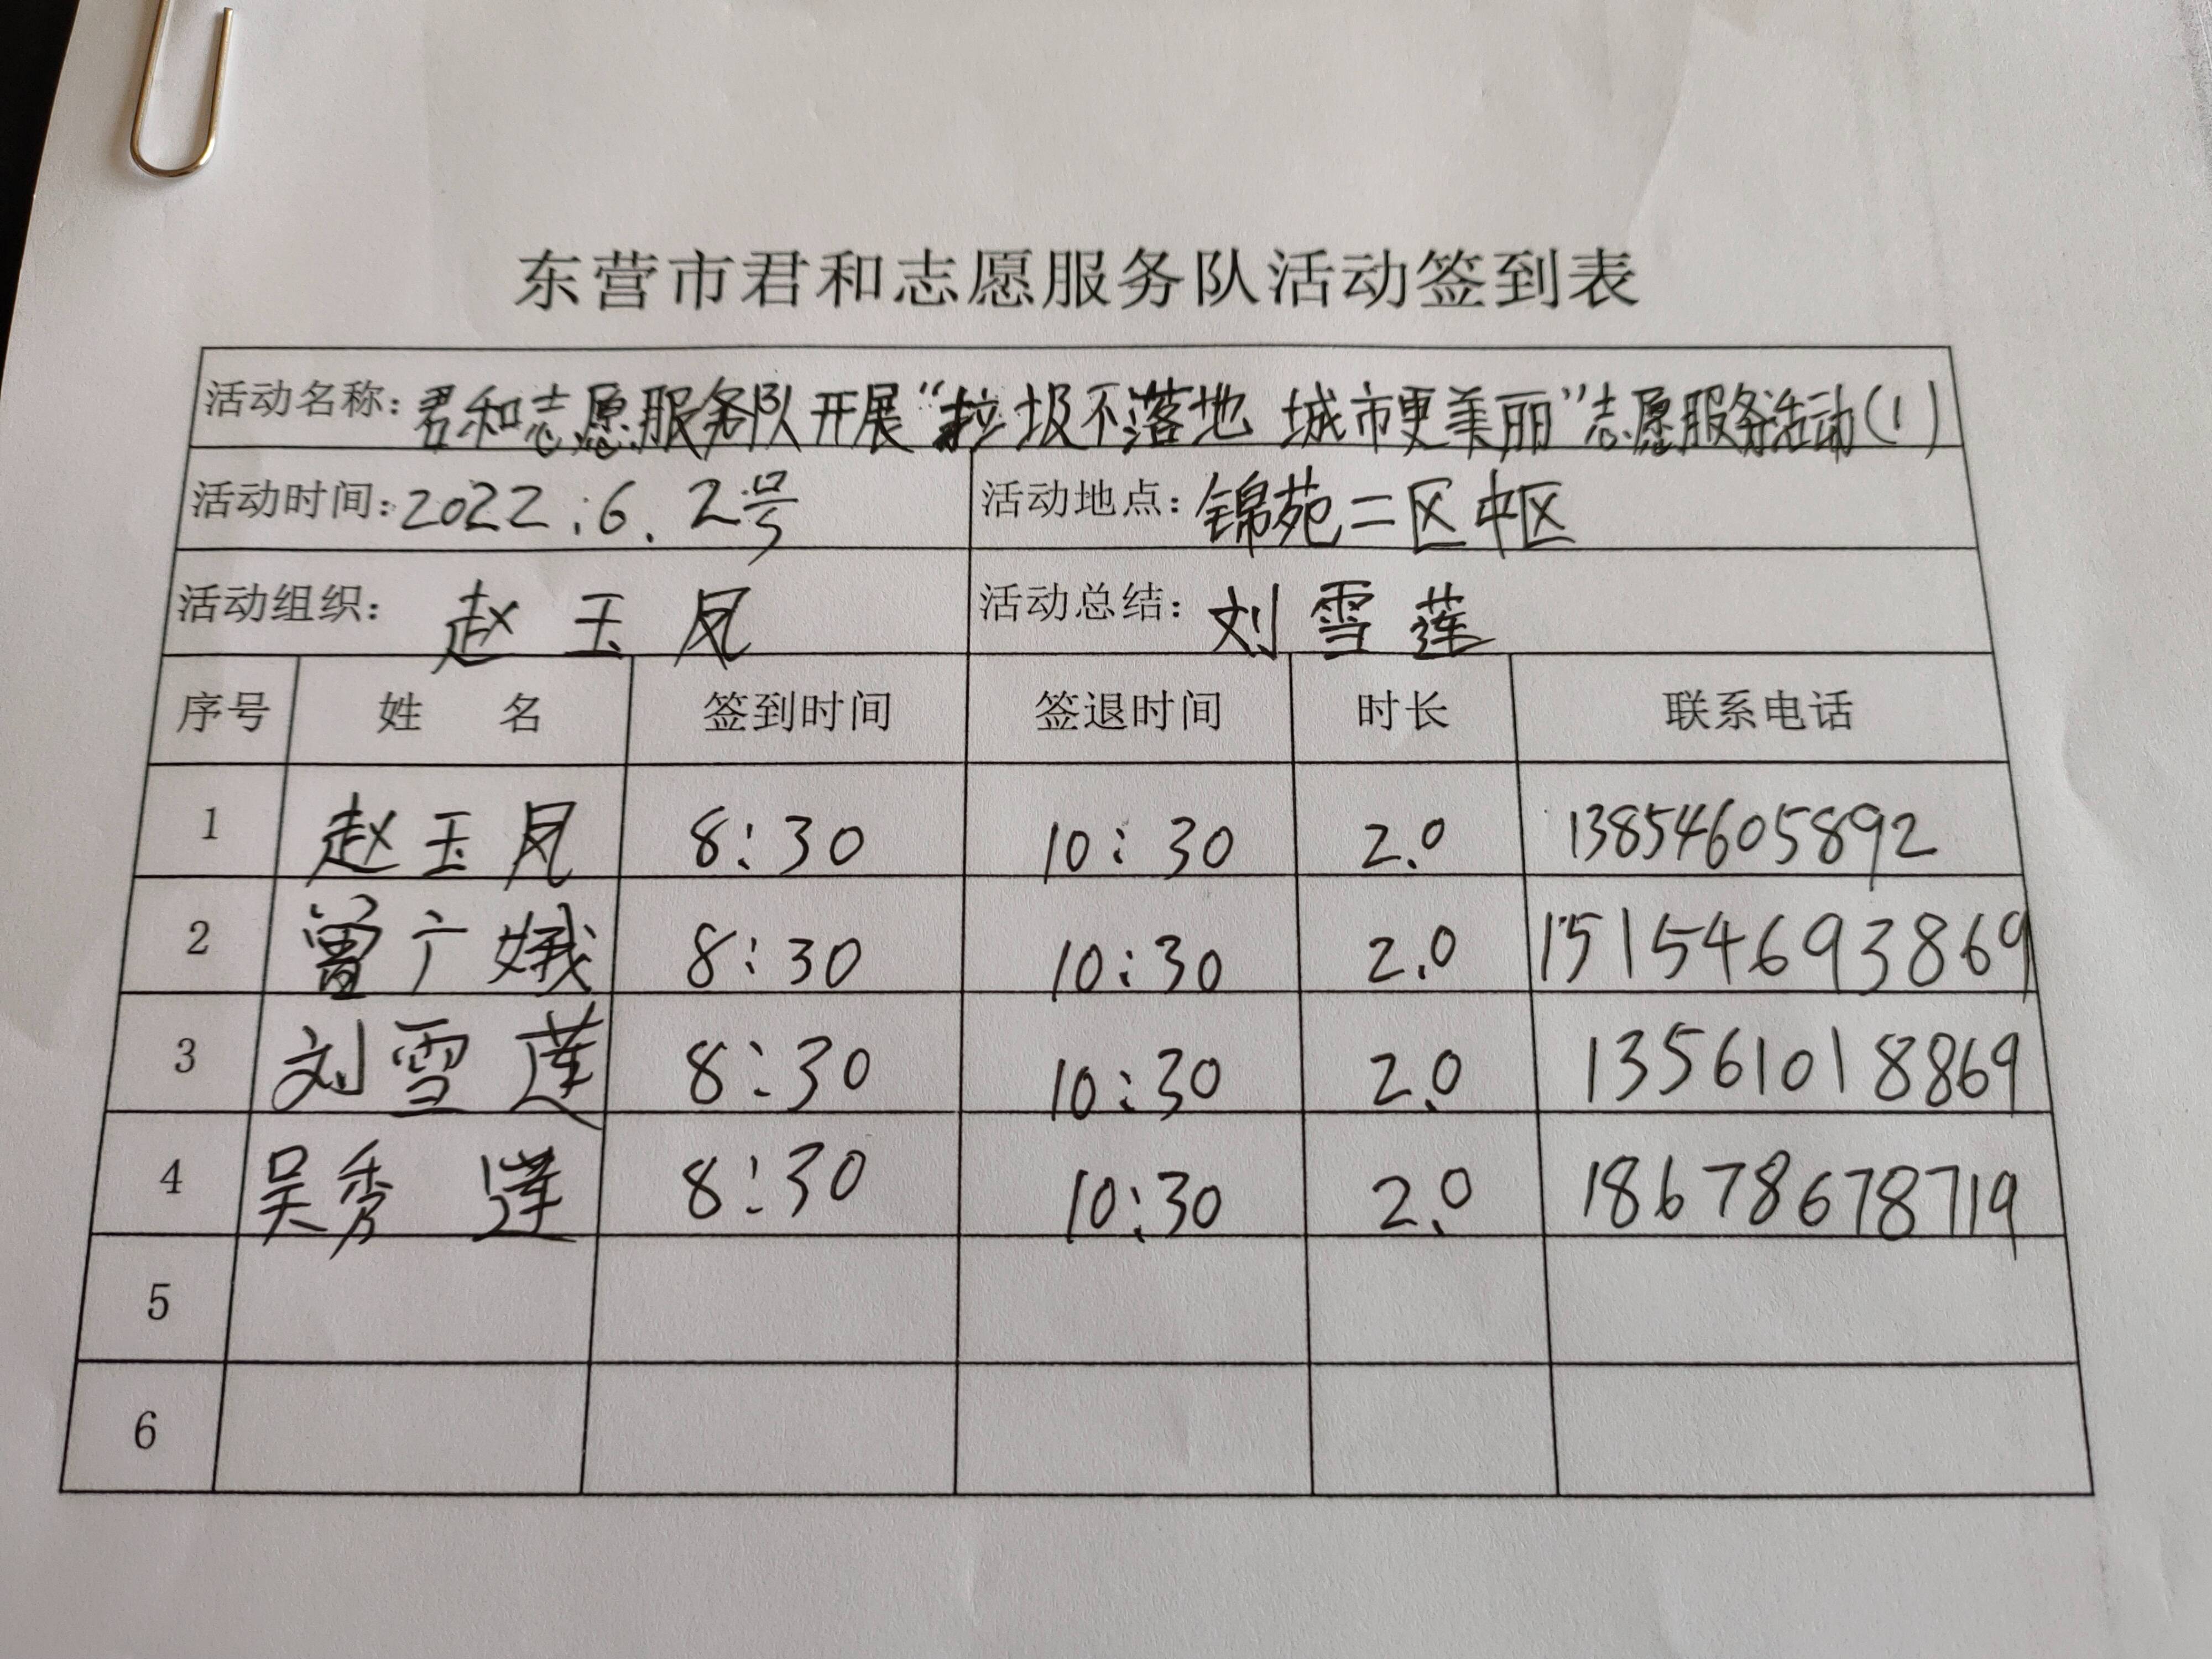 东营市君和志愿服务队活动签到表
活动名称：君和志愿服务队开展“垃圾不落地 城市更美丽”志愿服务活动(1)
活动时间：2022.6.2号 活动地点：锦苑二区中区
活动组织：赵玉凤 活动总结：刘雪莲
序号 姓名 签到时间 签退时间 时长 联系电话
1 赵玉凤 8:30 10:30 2.0 13854605892
2 曾广娥 8:30 10:30 2.0 15154693869
3 刘雪莲 8:30 10:30 2.0 13561018869
4 吴秀莲 8:30 10:30 2.0 18678678719
5
6